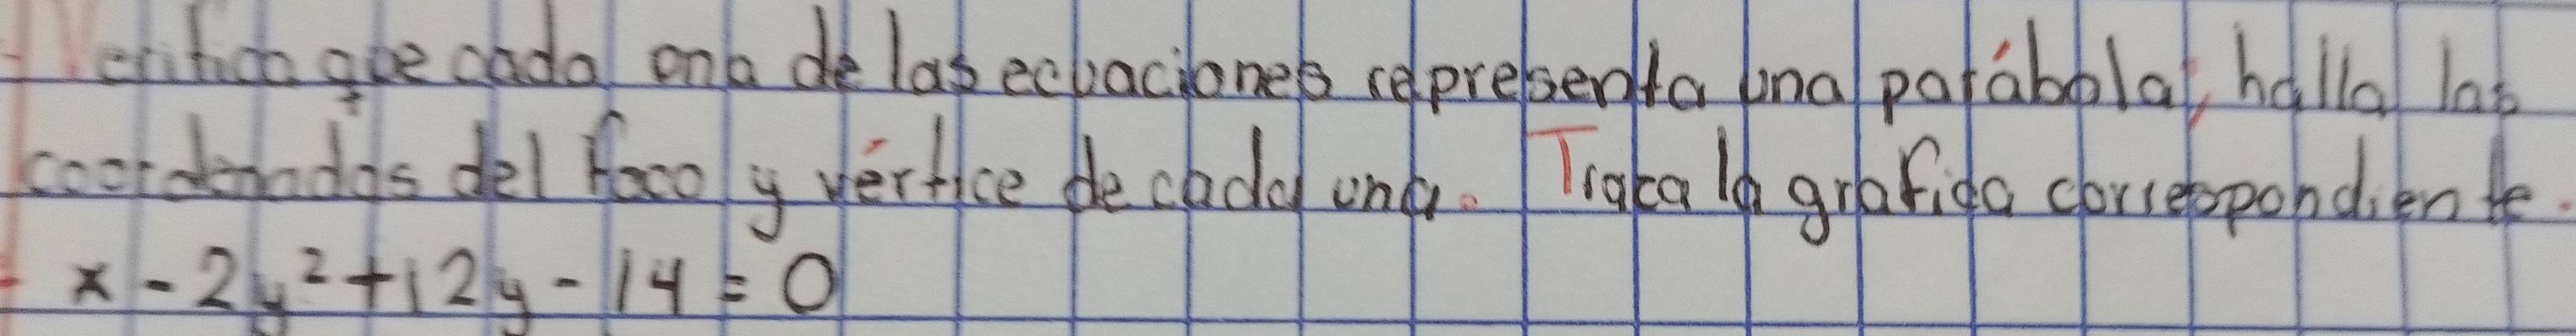 Verifica que cada una de las ecuaciones representa una parábola, halla las
coordenadas del foco y vértice de cada una. Traza la grafica correspondiente.
x - 2y² + 12y - 14 = 0